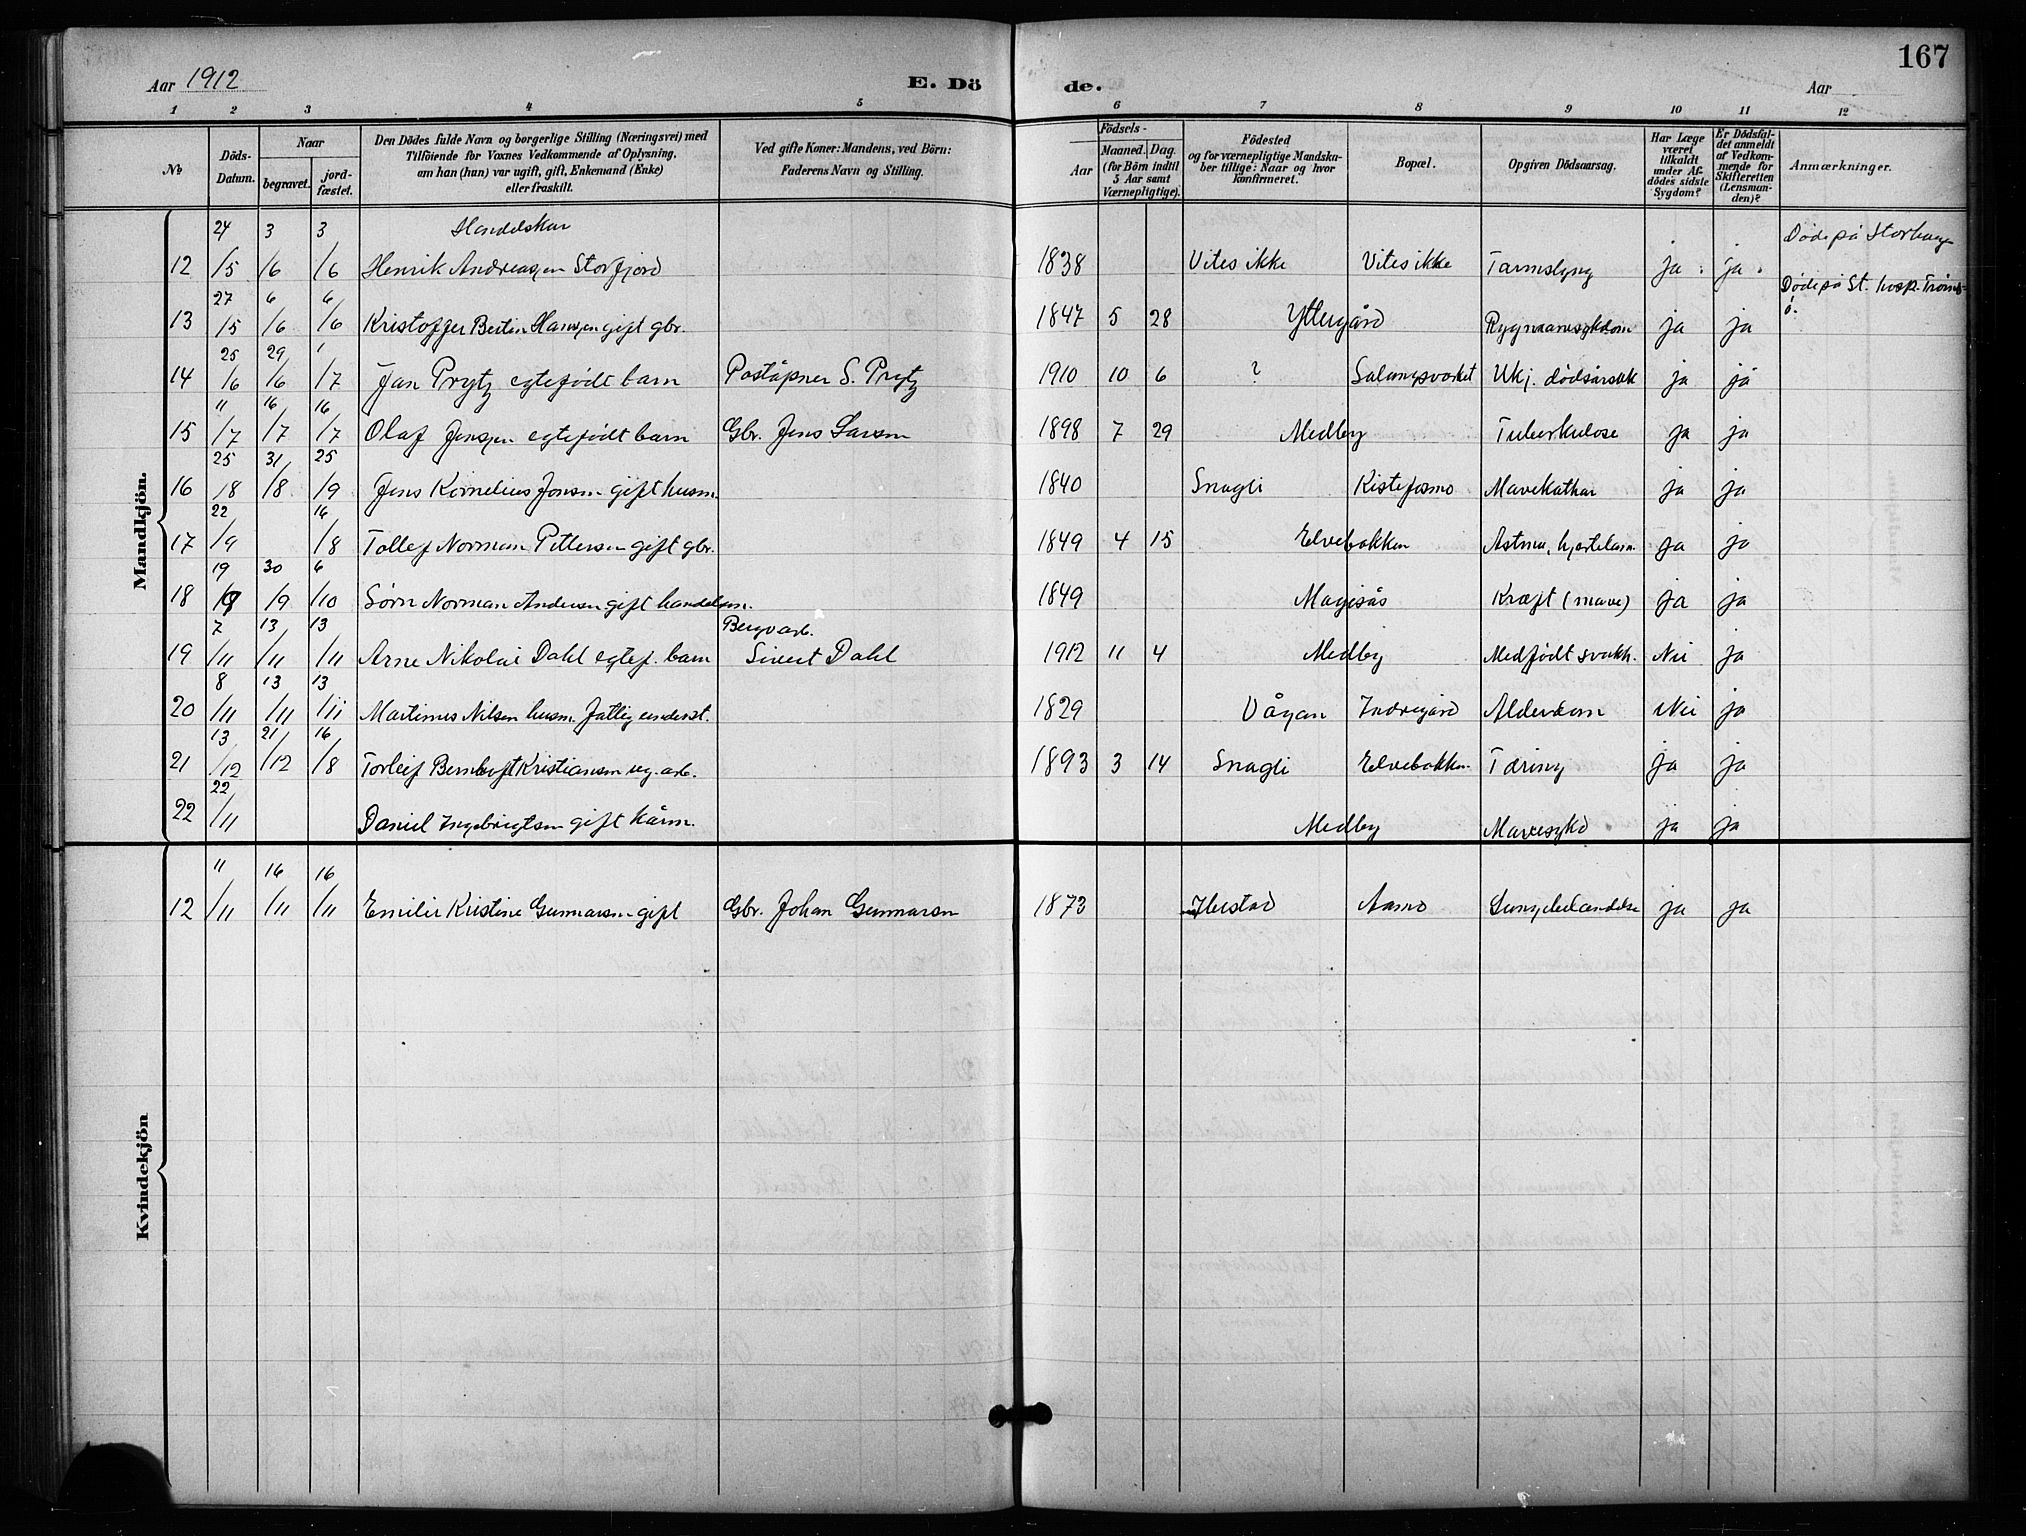 167
Aar 1912 E. Dö de. Aar
1 2 3 4 5 6 7 8 9 10 11 12
No Döds-Datum. Naar begravet. jord-fæstet. Den Dödes fulde Navn og borgerlige Stilling (Næringsvei) med Tilföiende for Voxnes Vedkommende af Oplysning, om han (hun) var ugift, gift, Enkemand (Enke) eller fraskilt. Ved gifte Koner: Mandens, ved Börn: Faderens Navn og Stilling. Födsels- Aar Maaned. Dag. (for Börn indtil 5 Aar samt Værnepligtige). Födested og for værnepligtige Mandskaber tillige: Naar og hvor konfirmeret. Bopæl. Opgiven Dödsaarsag. Har Læge været tilkaldt under Afdödes sidste Sygdom? Er Dödsfaldet anmeldt af Vedkommende for Skifteretten (Lensmanden)? Anmærkninger.
Mandkjön.
12 24/5 3/6 3/6 Handelskar Henrik Andreassen Storfjord 1838 Vites ikke Vites ikke Tarmslyng ja ja Døde på
13 27/5 6/6 6/6 Kristoffer Bertin Hansen gift gbr. 1847 5 28 Yttergård Rygmarvsykdom ja ja Døde på St. hosp. Tromsö.
14 25/6 29/6 1/7 Jan Prytz egtefødt barn Poståpner S. Prytz 1910 10 6 ? Salangsverket Ukj. dødsårsak ja ja
15 11/7 16/7 16/7 Olaf Jensen egtefødt barn Gbr. Jens Larsen 1898 7 29 Medby Tuberkulose ja ja
16 25/8 31/8 25/9 Jens Kornelius Jensen gift husm. 1840 Snagli Kistefosmo Mavekathar ja ja
17 22/9 16/8 Tollef Norman Pettersen gift gbr. 1849 4 15 Elvebakken Astma, ja ja
18 19/9 30/9 6/10 Sørn Norman Andersen gift handelsm. 1849 Kræft (mave) ja ja
19 7/11 13/11 13/11 Arne Nikolai Dahl egtef. barn Bergvarb. Sivert Dahl 1912 11 4 Medby Medfødt svakh. Nei ja
20 8/11 13/11 13/11 Martinus Nilsen husm. fattig underst. 1829 Vågan Indregård Alderdom Nei ja
21 13/12 21/12 16/8 Torleif Bernhoft Kristiansen ug. arb. 1893 3 14 Snagli Elvebakken Tæring ja ja
22 22/11 Daniel Ingebrigtsen gift kårm. Medby Mavesykd ja ja
Kvindekjön
12 11/11 16/11 16/11 Emilie Kristine Gunnarsen gift Gbr. Johan Gunnarsen 1873 Ibestad Aamo Lungebetændelse ja ja